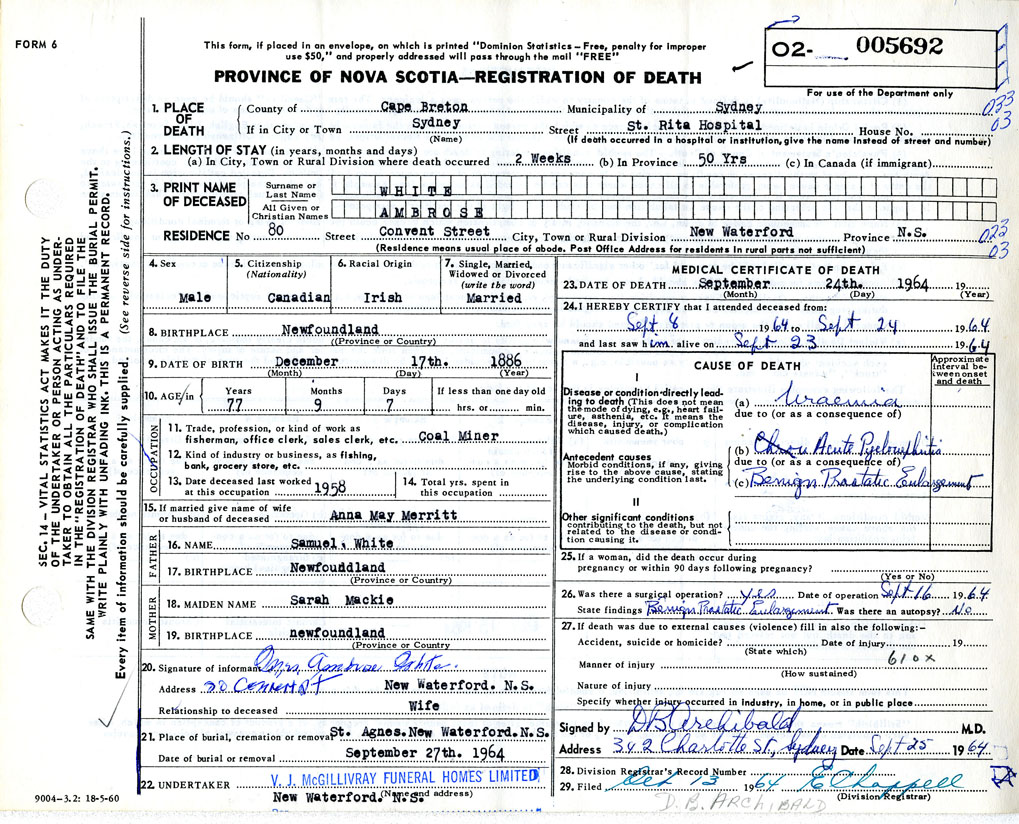 FORM 6
This form, if placed in an envelope, on which is printed "Dominion Statistics – Free, penalty for improper
use $50," and properly addressed will pass through the mail "FREE"
PROVINCE OF NOVA SCOTIA—REGISTRATION OF DEATH
02- 005692
For use of the Department only
1. PLACE OF DEATH
County of Cape Breton Municipality of Sydney
033
03
If in City or Town Sydney Street St. Rita Hospital House No.
(Name) (If death occurred in a hospital or institution, give the name instead of street and number)
2. LENGTH OF STAY (in years, months and days)
(a) In City, Town or Rural Division where death occurred 2 Weeks (b) In Province 50 Yrs (c) In Canada (if immigrant)
3. PRINT NAME OF DECEASED
Surname or Last Name WHITE
All Given or Christian Names AMBROSE
RESIDENCE No 80 Street Convent Street City, Town or Rural Division New Waterford Province N.S.
(Residence means usual place of abode. Post Office Address for residents in rural parts not sufficient)
03
4. Sex
Male
5. Citizenship
(Nationality)
Canadian
6. Racial Origin
Irish
7. Single, Married,
Widowed or Divorced
(write the word)
Married
8. BIRTHPLACE Newfoundland
((Province or Country)
9. DATE OF BIRTH December 17th. 1886
(Month) (Day) (Year)
10. AGE/in Years Months Days If less than one day old
77 9 7 hrs. or min.
OCCUPATION
11. Trade, profession, or kind of work as
fisherman, office clerk, sales clerk, etc. Coal Miner
12. Kind of industry or business, as fishing,
bank, grocery store, etc.
13. Date deceased last worked
at this occupation 1958
14. Total yrs. spent in
this occupation
15. If married give name of wife
or husband of deceased Anna May Merritt
FATHER
16. NAME Samuel. White
17. BIRTHPLACE Newfouddland
(Province or Country)
MOTHER
18. MAIDEN NAME Sarah Mackie
19. BIRTHPLACE newfoundland
(Province or Country)
20. Signature of informant Mrs Ambrose
Address New Waterford. N.S.
Relationship to deceased Wife
21. Place of burial, cremation or removal St. Agnes. New Waterford. N.S.
Date of burial or removal September 27th. 1964
22. UNDERTAKER V. J. McGILLIVRAY FUNERAL HOMES LIMITED
(Name and address)
New Waterford. N.S.
9004-3.2: 18-5-60
MEDICAL CERTIFICATE OF DEATH
23. DATE OF DEATH September 24th. 1964 19
(Month) (Day) (Year)
24. I HEREBY CERTIFY that I attended deceased from:
Sept 8 1964 to Sept 24 1964
and last saw him alive on Sept 23 1964
CAUSE OF DEATH
Approximate
interval be-
tween onset
and death
I
Disease or condition directly lead-
ing to death (This does not mean
the mode of dying, e.g., heart fail-
ure, asthenia, etc. It means the
disease, injury, or complication
which caused death.)
(a) Uraemia
due to (or as a consequence of)
Antecedent causes
Morbid conditions, if any, giving
rise to the above cause, stating
the underlying condition last.
(b) Acute Pyelonephritis
due to (or as a consequence of)
(c) Benign Prostatic Enlargement
II
Other significant conditions
contributing to the death, but not
related to the disease or condi-
tion causing it.
25. If a woman, did the death occur during
pregnancy or within 90 days following pregnancy?
(Yes or No)
26. Was there a surgical operation? yes Date of operation Sept 16 1964
State findings Benign Prostatic Enlargement Was there an autopsy? No
27. If death was due to external causes (violence) fill in also the following:—
Accident, suicide or homicide? Date of injury 19
(State which)
Manner of injury 610X
(How sustained)
Nature of injury
Specify whether injury occurred in industry, in home, or in public place
Signed by D B Archibald M.D.
Address 342 Charlotte St, Sydney Date Sept 25 1964
28. Division Registrar's Record Number
29. Filed Oct 13 1964 E Chappell
(Division Registrar)
D. B. ARCHIBALD
SEC. 14 – VITAL STATISTICS ACT MAKES IT THE DUTY
OF THE UNDERTAKER OR PERSON ACTING AS UNDER-
TAKER TO OBTAIN ALL THE PARTICULARS REQUIRED
IN THE "REGISTRATION OF DEATH" AND TO FILE THE
SAME WITH THE DIVISION REGISTRAR WHO SHALL ISSUE THE BURIAL PERMIT.
WRITE PLAINLY WITH UNFADING INK. THIS IS A PERMANENT RECORD.
Every item of information should be carefully supplied. (See reverse side for instructions.)